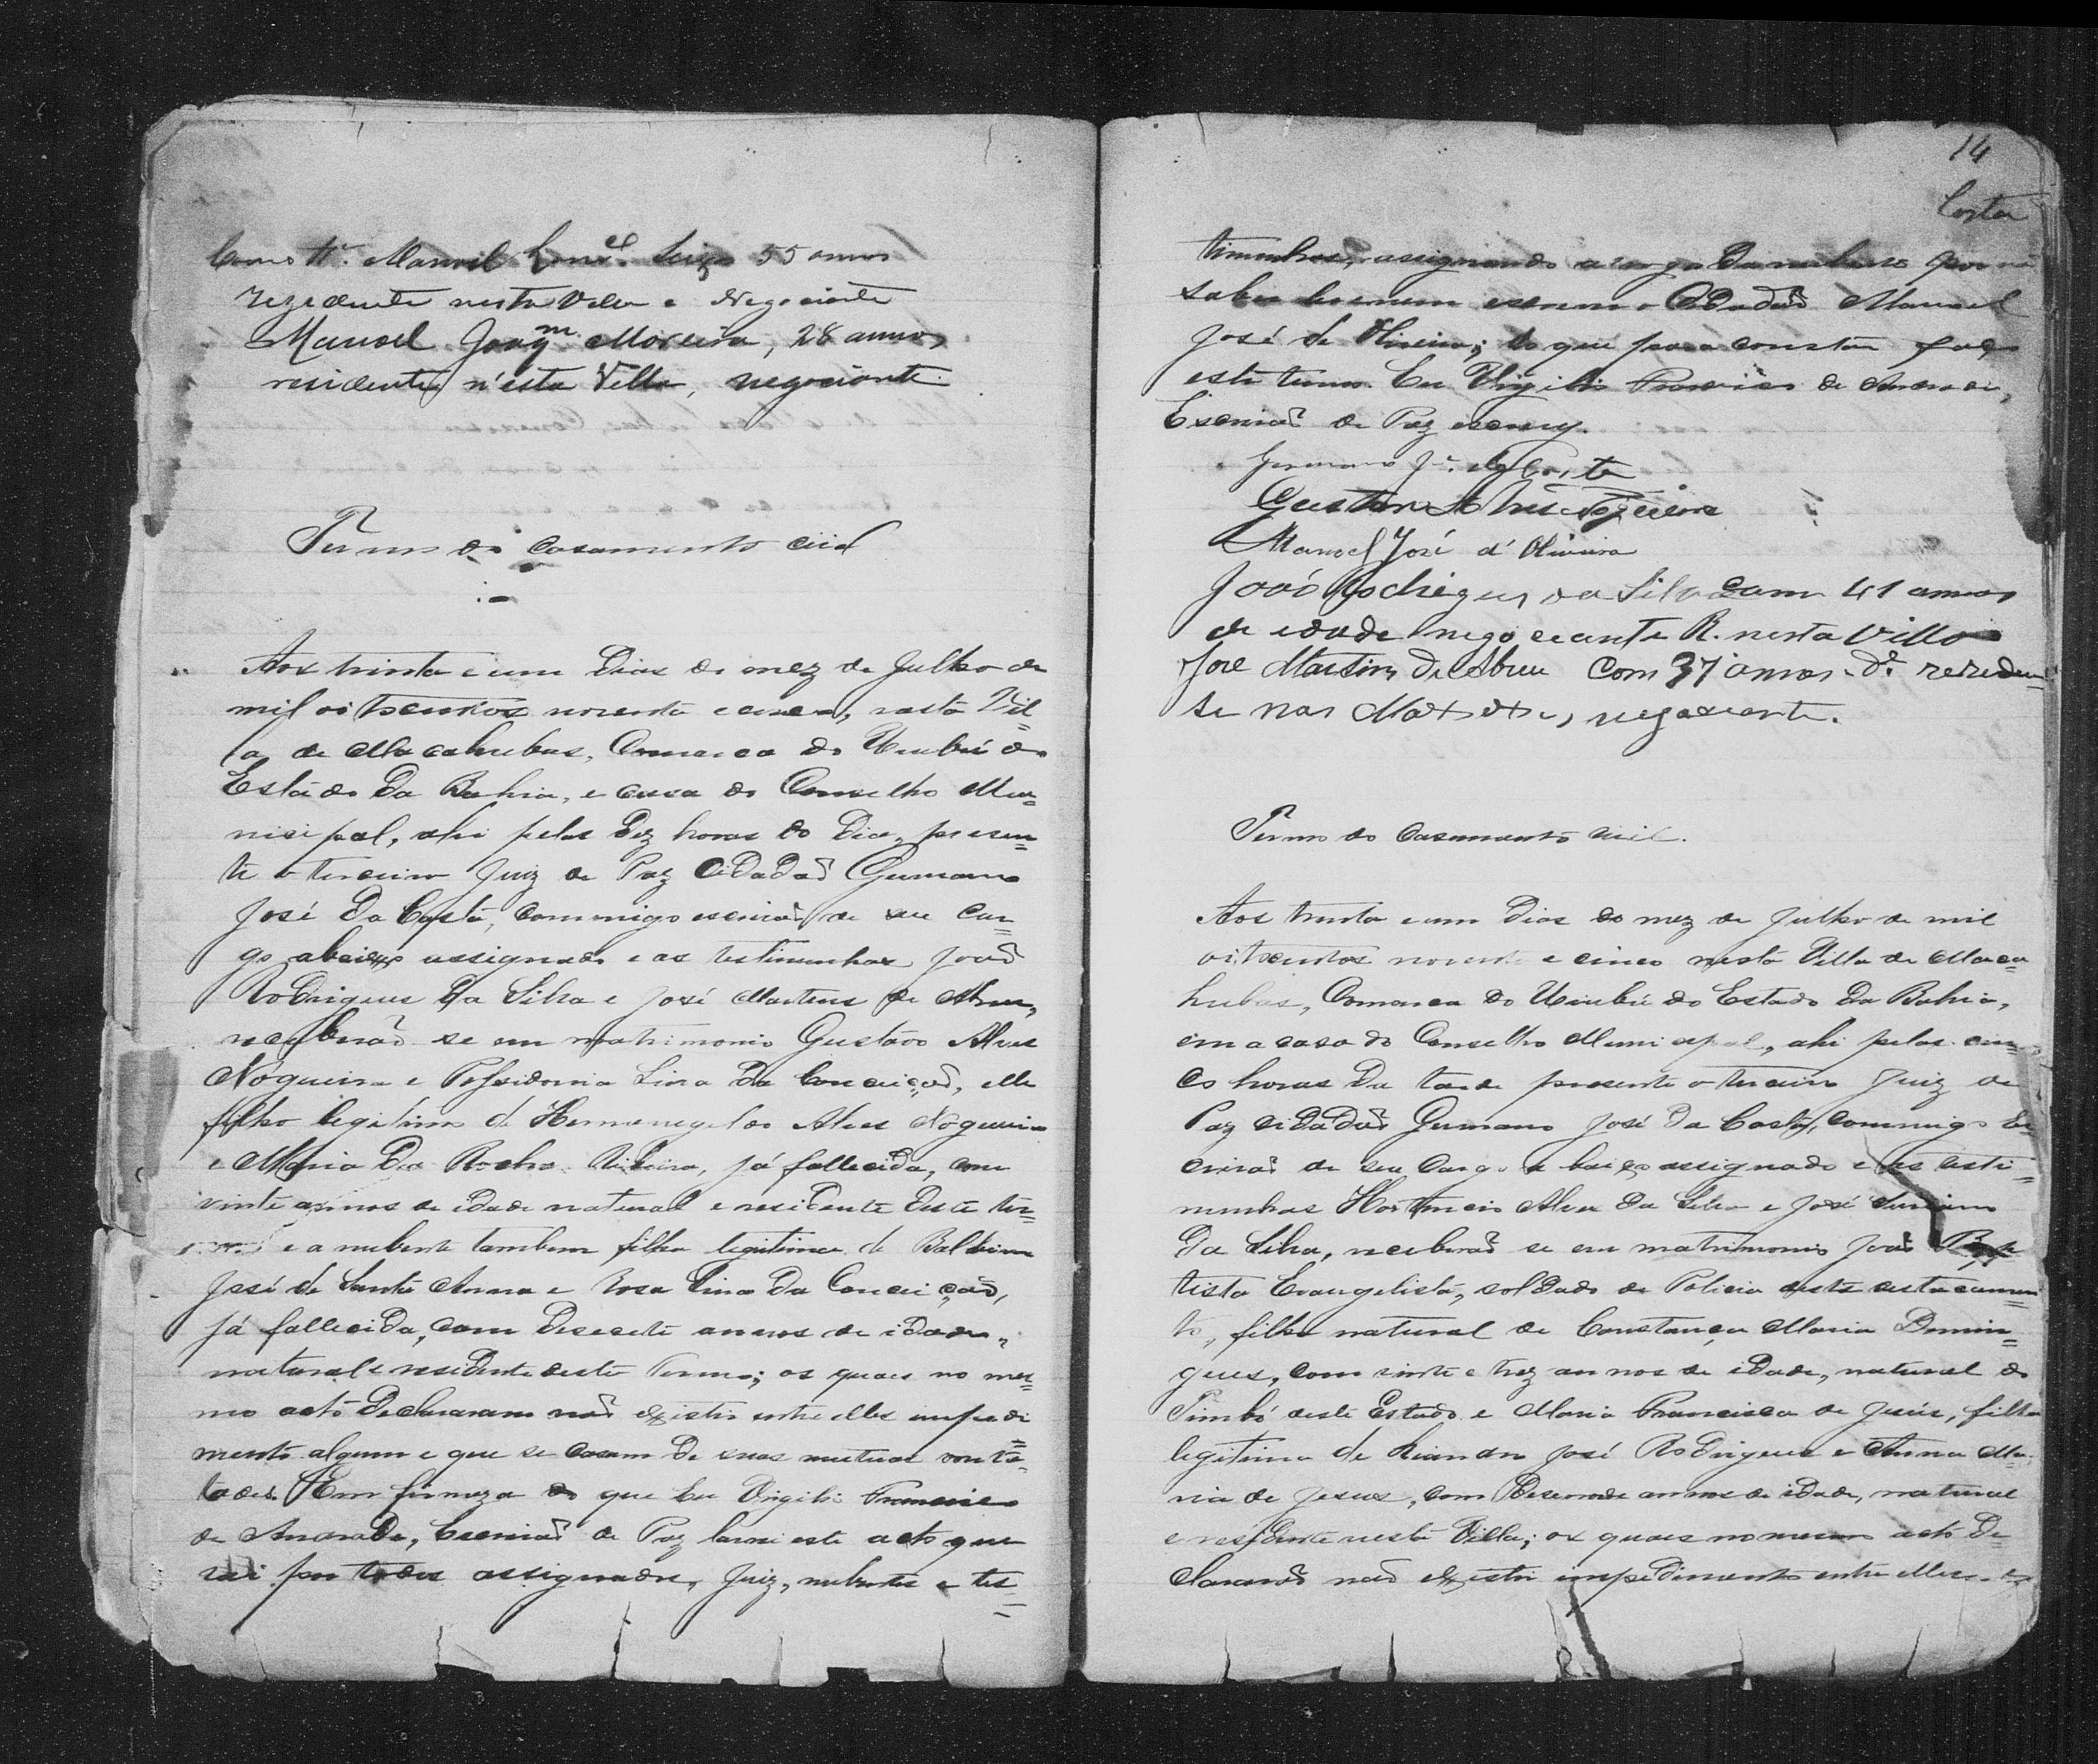 Como tª. Manoel Gonçel. 55 annos
rezedente nesta Villa e Negociante
Manoel Joaqm. Moreira, 28 annos,
residente n'esta Villa, negociante.
Termo de casamento civil
Aos trinta e um dias do mez de Julho de
mil oitocentos noventa e cinco, nesta Vil=
la de Macahubas, Comarca do Urubú do
Estado da Bahia, e casa do Conselho Mu=
nicipal, ahi pelas dez horas do dia, presen=
te o terceiro Juiz de Paz Cidadaõ Germano
José da Costa, commigo escrivaõ de seu car=
go abaixo assignado e as testimunhas Joaõ
Rodrigues da Silva e José Martins de Abreu,
receberaõ se em matrimonio Gustavo Alves
Nogueira e Possidonia Lina da Conceiçaõ, elle
filho legitimo de Hermenegildo Alves Nogueira
e Maria da Rocha Ribeiro, já fallecida, com
vinte annos de idade natural e residente deste ter=
e a nubente tambem filha legitima de Balbino
José de Santa Anna e Rosa Lina da Conceiçaõ,
já fallecida, com desecete annos de idade,
natural e residente deste Termo; os quaes no mes=
mo acto declararam naõ existir entre elles impedi=
mento algum e que se casam de suas mutuas vonta=
tades. Em firmeza do que Eu Virgilio Francisco
de Andrade, Escrivaõ de Paz lavrei este acto que
vai por todos assignados, Juiz, nubentes e tes=
14
Costa
timunhas, assignando a rogo da nubente por naõ
saber ler nem escrever o Cidadaõ Manoel
José de Oliveira; do que para constar faço
este termo. Eu Virgilio Francisco de Andrade,
Escrivaõ de Paz escrevy.
Germano Jé. da Costa
Gustavo Alves Nogueira
Manoel José d'Oliveira
João Rodrigues da Silva com 41 annos
de idade negociante R. nesta Villa
José Martins de Abreu com 37 annos. de rezeden=
te nas negociante.
Termo do casamento civil.
Aos trinta e um dias do mez de Julho de mil
oitocentos noventa e cinco nesta Villa de Maca=
hubas, Comarca do Urubú do Estado da Bahia,
em a casa do Conselho Municipal, ahi pelas cin=
co horas da tarde presente o terceiro Juiz de
Paz cidadaõ Germano José da Costa, commigo Es=
crivaõ de seu cargo abaixo assignado e as testi=
munhas Hortencio Alves da Silva e José
da Silva, receberaõ se em matrimonio Joaõ Bap=
tista Evangelista, soldado de Policia deste destacamen=
to, filho natural de Constança Maria Domin=
gues, com vinte e trez annos de idade, natural do
Timbó deste Estado e Maria Francisca de Jesus, filha
legitima de José Rodrigues e Anna Ma=
ria de Jesus, com desenove annos de idade, natural
e residente nesta Villa; os quaes no mesmo acto de=
clararaõ naõ existir impedimento entre elles e